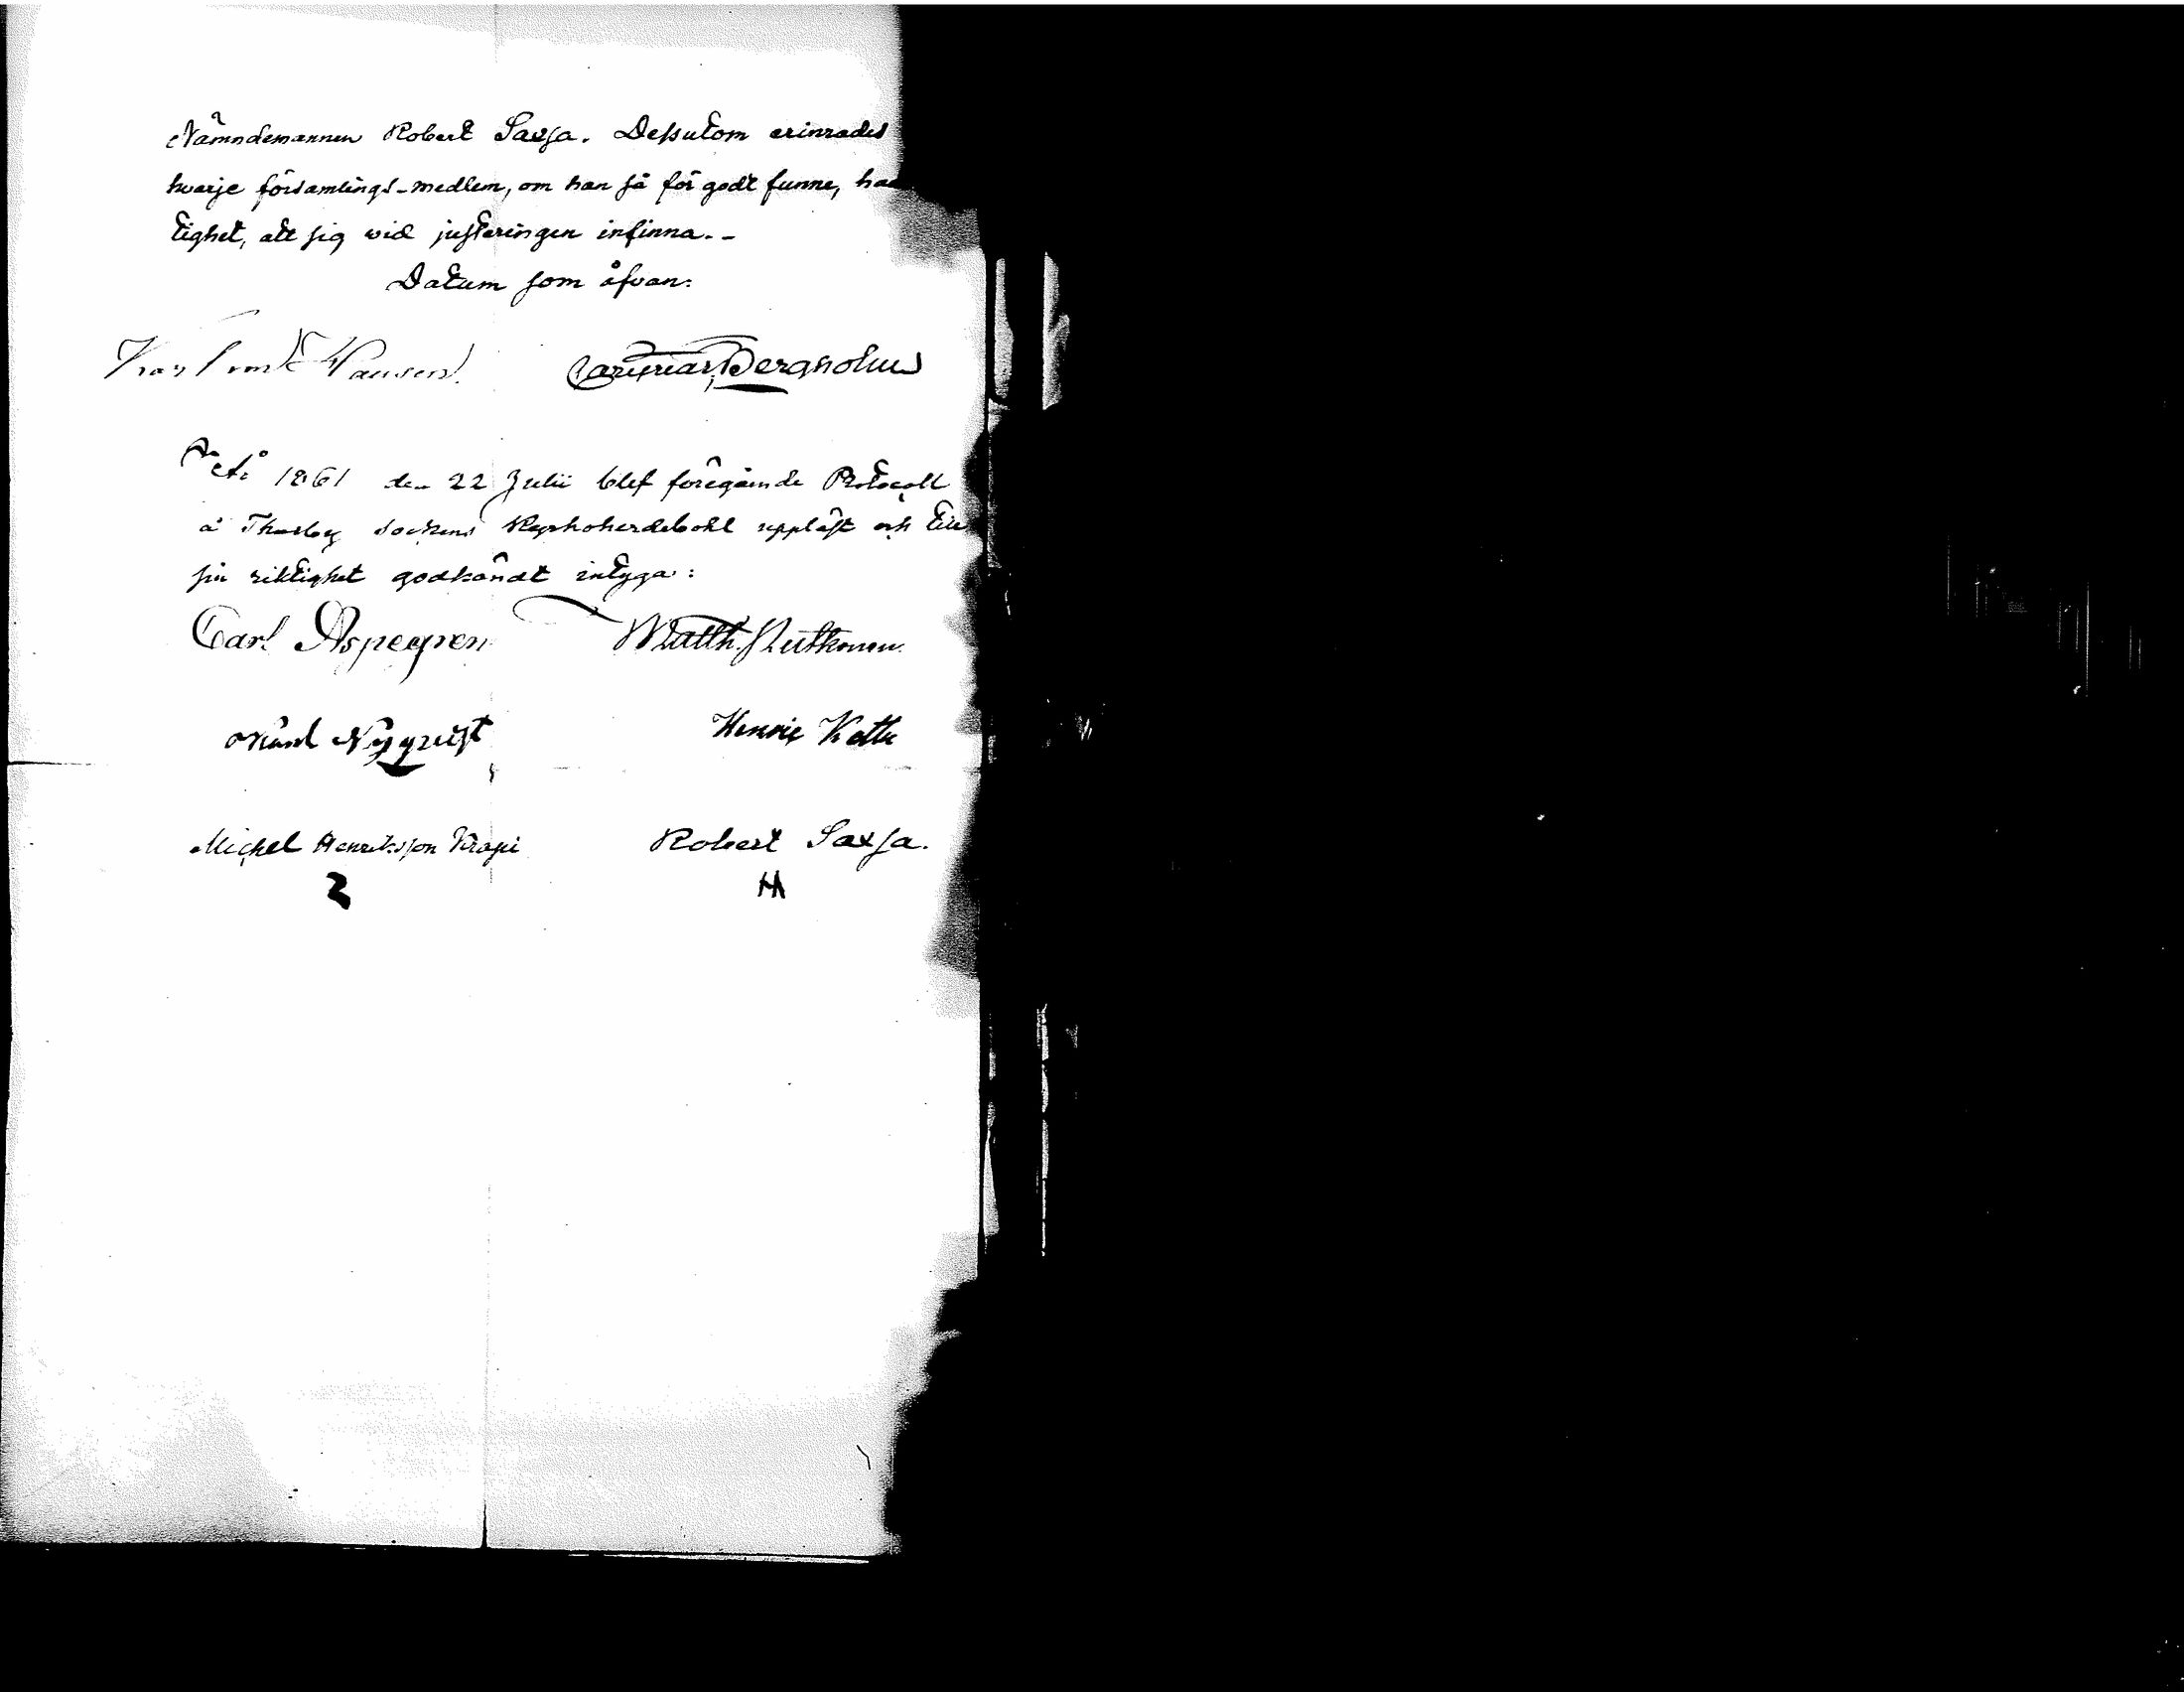 Nämndemannen Robert Saxsa. Dessutom erinrades
hvarje församlings-medlem, om han så för godt funne,
tighet, att sig vid justeringen infinna.-
Datum som åfvan.
Bergholm
År 1861 den 22 Julii blef föregående Protocoll
å Thusby sockens Kyrkoherdebohl uppläst och till
sin riktighet godkändt intyga:
Carl Aspegren Matth. Nutkonen.
Nyqvist Henric
Michel Henriksson Krapi Robert Saxsa.